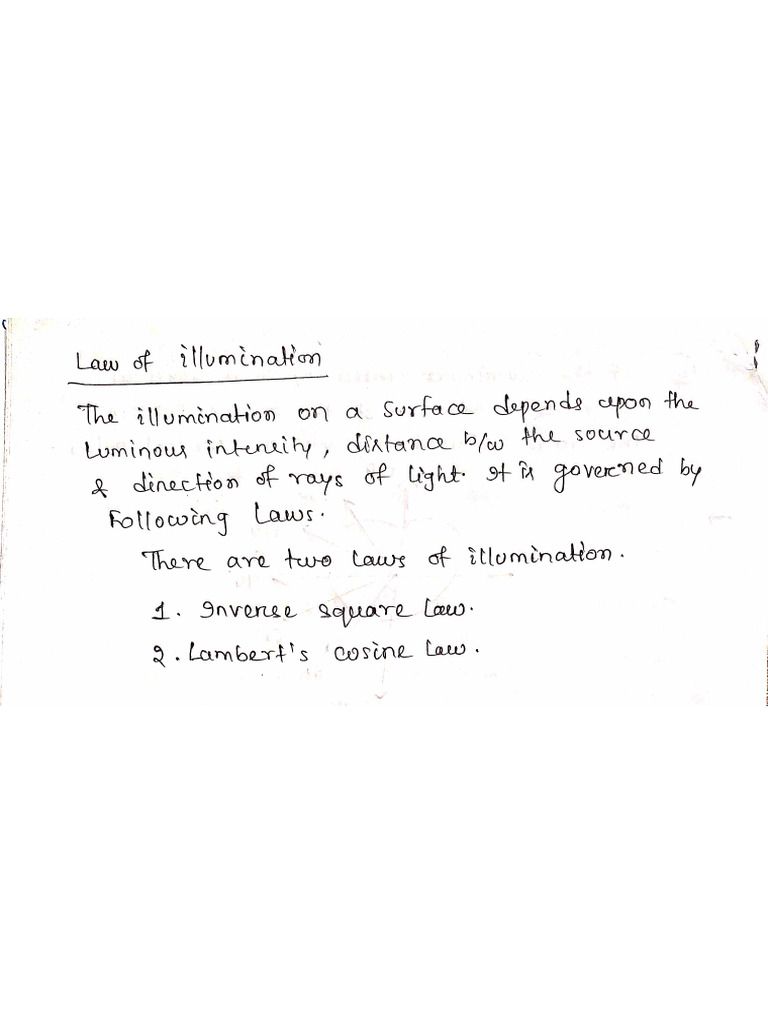 Law of illumination
The illumination on a surface depends upon the
Luminous intensity, distance b/w the source
& direction of rays of light. It is governed by
Following Laws.
There are two laws of illumination.
1. Inverse square Law.
2. Lambert's cosine Law.